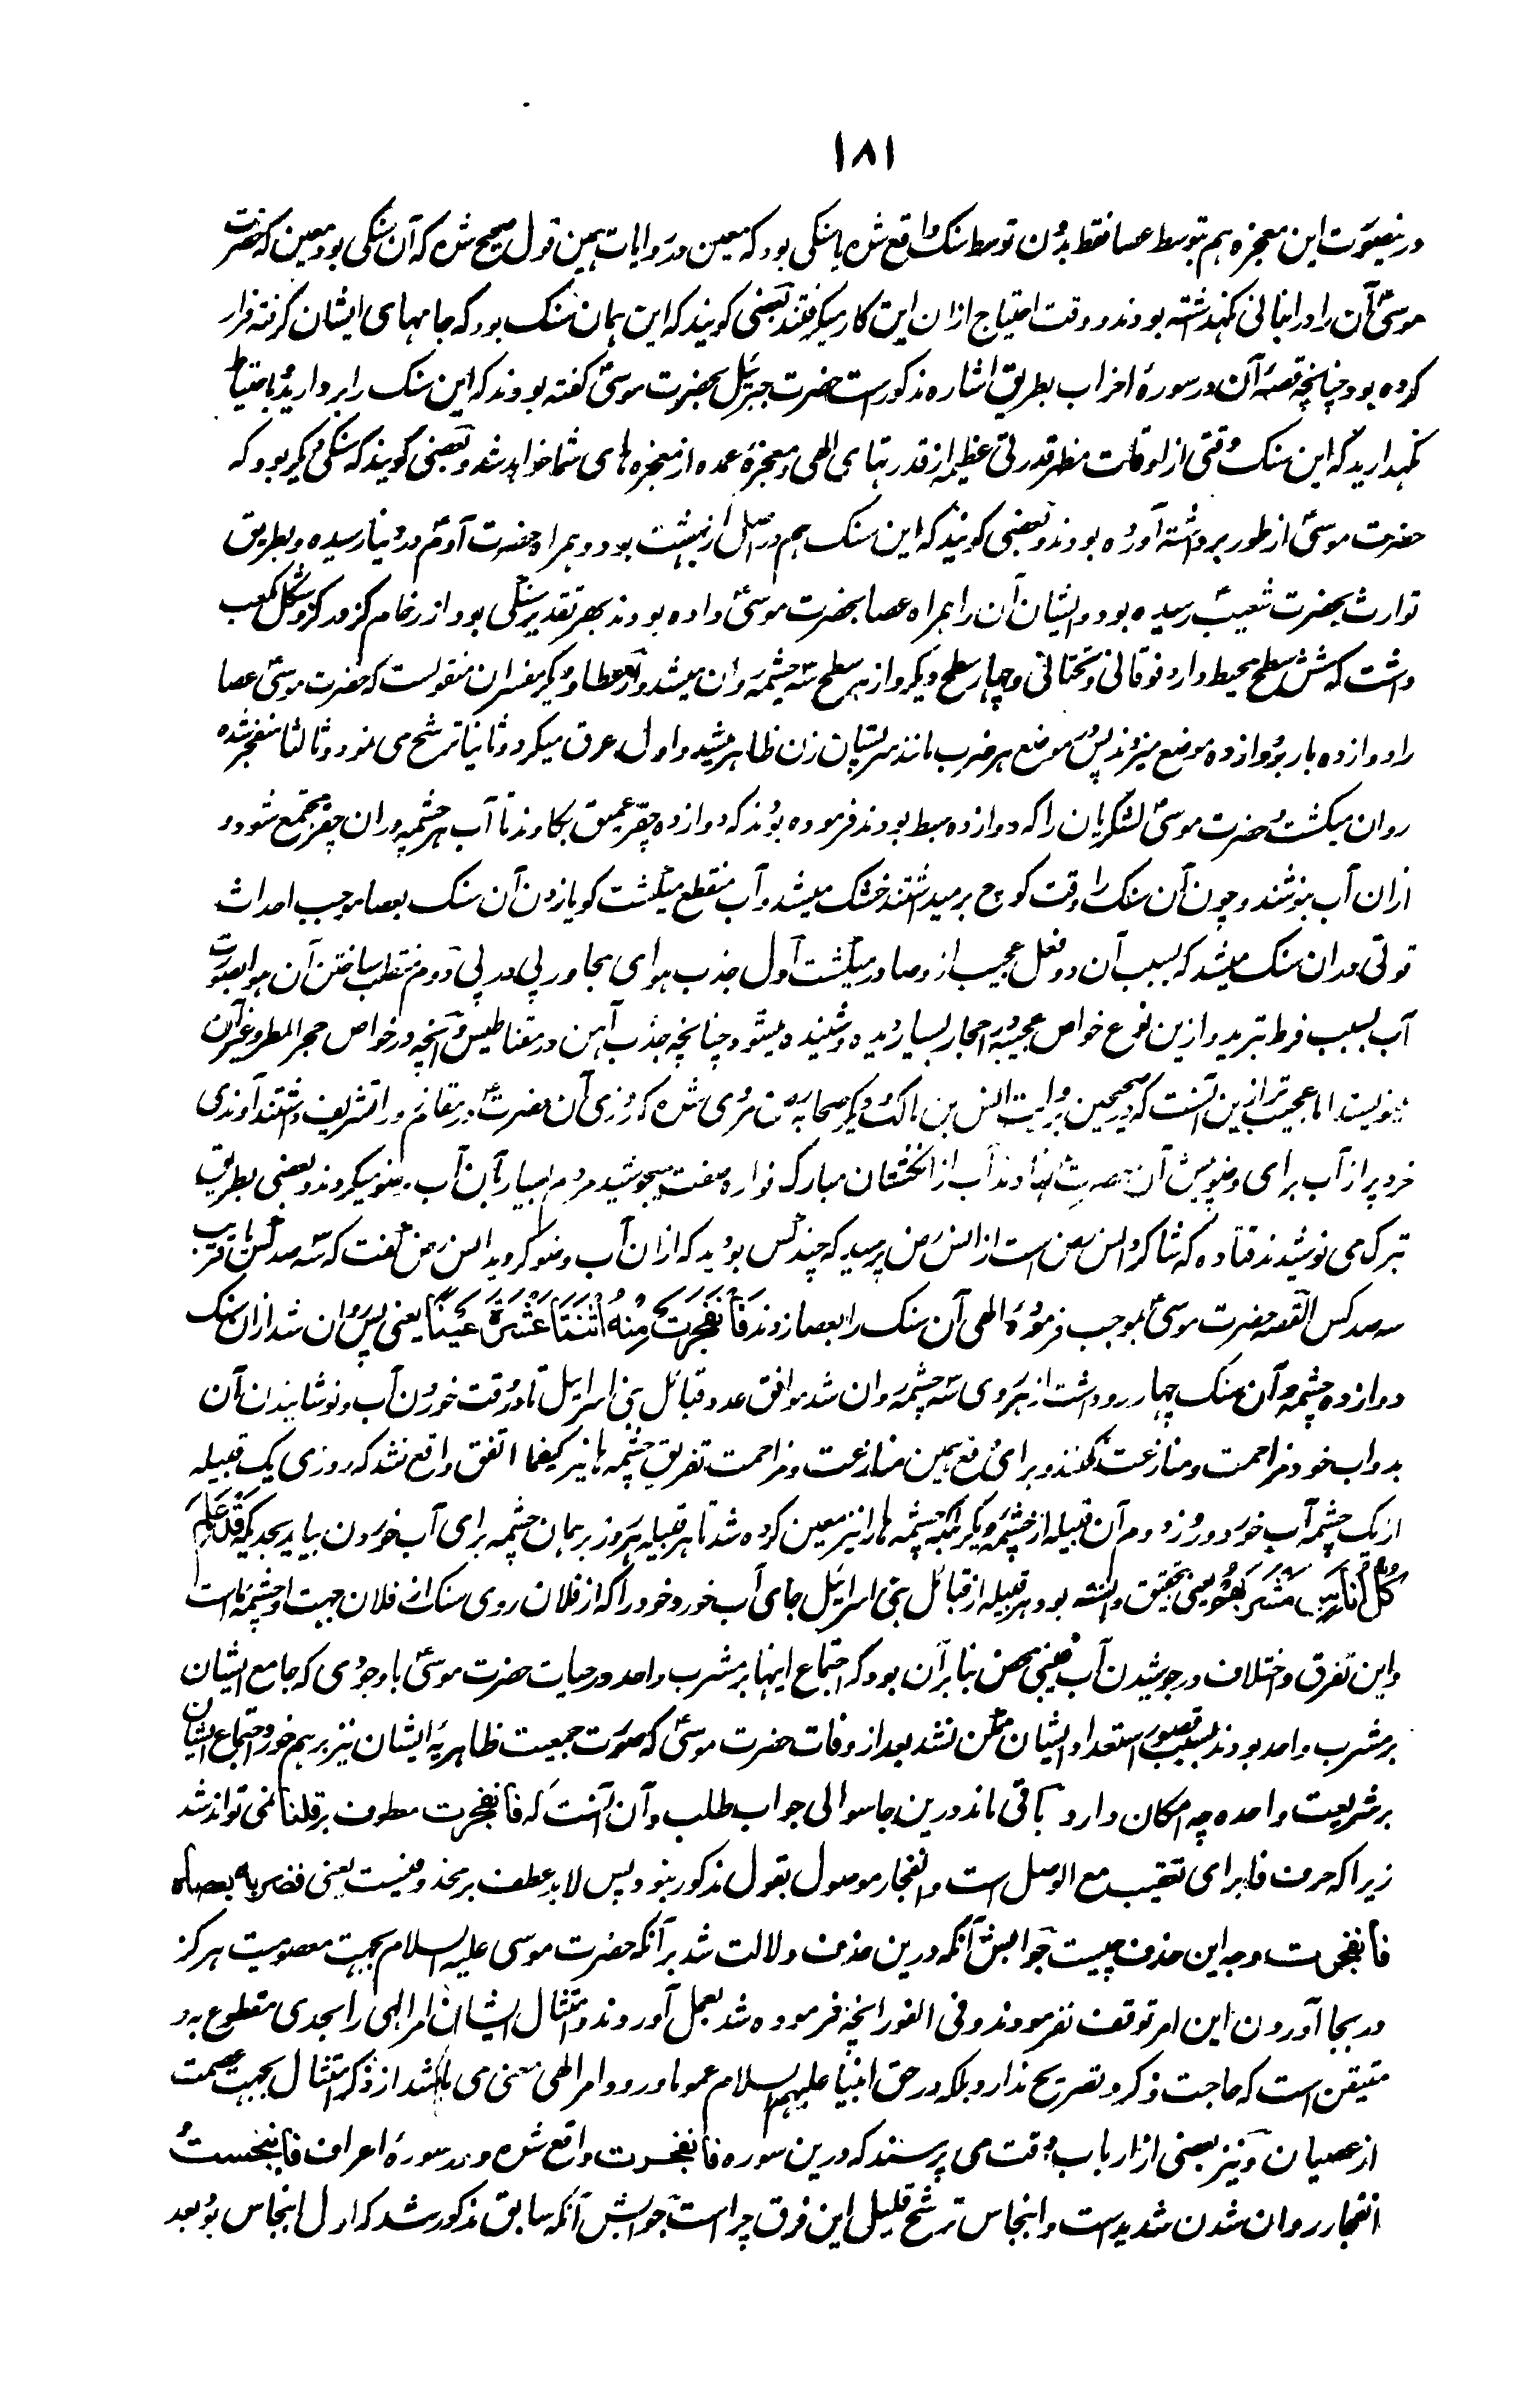 ۱۸۱
درینصورت این معجزه هم بتوسط عصا فقط بدون توسط سنک واقع شده یا سنکی بود که معین ودر روایات همین قول صحیح شده که آن سنکی بود معین که حضرت
موسیٰ آن را در انبانی نکهداشته بودند و وقت احتیاج ازان این کار میکرفتند بعضی کویند که این همان سنک بود که جامهای ایشان کرفته فرار
کرده بود چنانچه قصهٔ آن در سورهٔ احزاب بطریق اشاره مذکورست حضرت جبرئیل بحضرت موسیٰ کفته بودند که این سنک را بردارید و باحتیاط
نکهدارید که این سنک وقتی از اوقات مظهر قدرتی عظیم از قدرتهای الهی و معجزهٔ عمده از معجزه های شما خواهد شد و بعضی کویند که سنکی دیکر بود که
حضرت موسیٰ از طور برداشته آورده بودند و بعضی کویند که این سنک هم در اصل از بهشت بود و همراه حضرت آدم در دنیا رسیده و بطریق
توارث بحضرت شعیب رسیده بود و ایشان آن را همراه عصا بحضرت موسیٰ داده بودند بهر تقدیر سنکی بود از رخام کز در کز و شکل مکعب
داشت که شش سطح محیط دارد فوقانی و تحتانی و چهار سطح دیکر و از هر سطح سه چشمه روان میشد و از عطا و دیکر مفسران منقولست که حضرت موسیٰ عصا
را دوازده بار بر دوازده موضع میزدند پس در موضع هر ضرب مانند سر پستان زن ظاهر میشد و اول عرق میکرد و ثانیا ترشح می نمود و ثالثا منفجر شده
روان میکشت و حضرت موسیٰ لشکریان را که دوازده سبط بودند فرموده بودند که دوازده حفر عمیق بکاوند تا آب هر چشمه دران حفر مجتمع شود و
ازان آب بنوشند و چون آن سنک را وقت کوچ برمیداشتند خشک میشد و آب منقطع میکشت کویا زدن آن سنک بعصا موجب احداث
قوتی دران سنک میشد که بسبب آن دو فعل عجیب از و صادر میکشت اول جذب هوای مجاور پی در پی دوم منقلب ساختن آن هوا بصورت
آب بسبب فرط تبرید و ازین نوع خواص عجیبه در احجار بسیار دیده و شنیده میشود چنانچه جذب آهن در مقناطیس و آنچه در خواص حجر المطر و غیر آن
نویسند اما عجیب تر ازین آنست که در صحیحین بروایت انس بن مالک و دیکر صحابه مروی شده که روزی آن حضرت در مقام زورا تشریف داشتند آوندی
خرد پر از آب برای وضو پیش آن حضرت نهادند آب از انکشتان مبارک فواره صفت میجوشید مردم بسیار بآن آب وضو میکردند و بعضی بطریق
تبرک می نوشیدند قتاده که شاکرد انس رض است از انس رض پرسید که چند کس بودید که ازان آب وضو کردید انس رض کفت که سه صد کس یا قریب
سه صد کس القصه حضرت موسیٰ بموجب فرمودهٔ الهی آن سنک را بعصا زدند فَانْفَجَرَتْ مِنْهُ اثْنَتَا عَشْرَةَ عَيْنًا یعنی پس روان شد ازان سنک
دوازده چشمه و آن سنک چهار رو داشت از هر روی سه چشمه روان شد موافق عدد قبائل بنی اسرائیل تا در وقت خوردن آب و نوشانیدن آن
بدواب خود مزاحمت و منازعت نکنند و برای رفع همین منازعت و مزاحمت تفریق چشمه ها نیز کیفما اتفق واقع نشد که روزی یک قبیله
از یک چشمه آب خورد و روز دوم آن قبیله از چشمه دیکر بلکه چشمه ها را نیز معین کرده شد تا هر قبیله هر روز بر همان چشمه برای آب خوردن بیاید بحدیکه قَدْ عَلِمَ
كُلُّ أُنَاسٍ مَشْرَبَهُمْ یعنی بتحقیق دانسته بود هر قبیله از قبائل بنی اسرائیل جای آب خورد خود را که از فلان روی سنک از فلان جهت او چشمه ماست
و این تفرق و اختلاف در جوشیدن آب غیبی محض بنا بر آن بود که اجتماع اینها بر مشرب واحد در حیات حضرت موسیٰ با وجودی که جامع ایشان
بر مشرب واحد بودند بسبب قصور استعداد ایشان ممکن نشد بعد از وفات حضرت موسیٰ که صورت جمعیت ظاهریه ایشان نیز برهم خورد اجتماع ایشان
بر شریعت واحده چه امکان دارد باقی ماند درین جا سوالی جواب طلب و آن آنست که فانفجرت معطوف بر قلنا نمی تواند شد
زیرا که حرف فا برای تعقیب مع الوصل است و انفجار موصول بقول مذکور نبود پس لابد عطف بر محذوفیست یعنی فضربه بعصاه
فانفجرت وجه این حذف چیست جوابش آنکه درین حذف دلالت شد بر آنکه حضرت موسی علیه السلام بجهت معصومیت هرکز
در بجا آوردن این امر توقف نفرمودند و فی الفور انچه فرموده شد بعمل آوردند و امتثال ایشان امر الهی را بحدی مقطوع به و
متیقن است که حاجت ذکر و تصریح ندارد بلکه در حق انبیا علیهم السلام عموما ورود امر الهی مغنی می باشد از ذکر امتثال بجهت عصمت
از عصیان و نیز بعضی از ارباب دقت می پرسند که درین سوره فانفجرت واقع شده و در سورهٔ اعراف فانبجست و
انفجار روان شدن شدیدست و انبجاس ترشح قلیل این فرق چراست جوابش آنکه سابق مذکور شد که اول انبجاس بود بعد